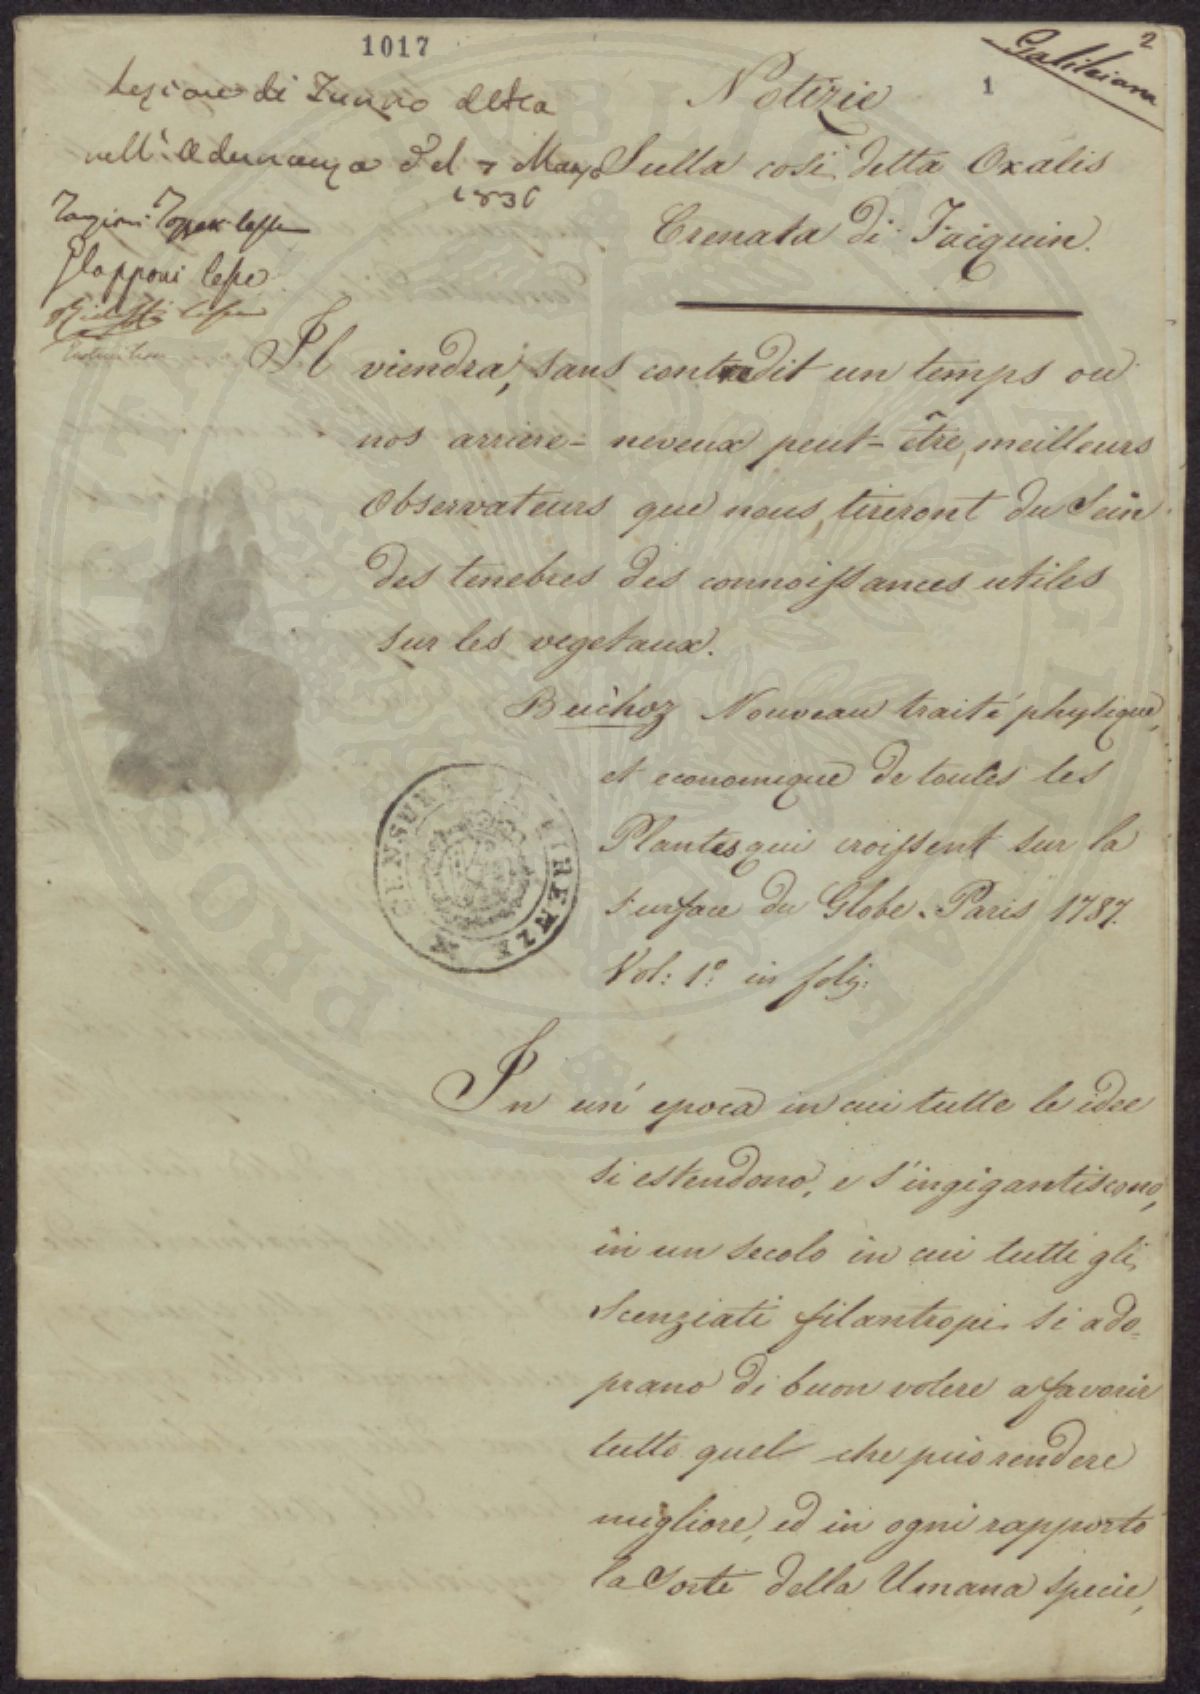 1017
2
Galileiana
1
Lezione di Turno detta
nell'Adunanza del 7 Marzo
1836
Targioni Tozzetti lesse
lesse
Notizie
Sulla così detta Oxalis
Crenata di Jacquin.
Il viendra, sans contredit un temps ou
nos arriere-neveux peut-être, meilleurs
Observateurs que nous, tireront du Sein
des tenebres des connoissances utiles
sur les vegetaux.
Buichoz Nouveau traité physique,
et economique de toutes les
Plantes qui croissent sur la
surface du Globe. Paris 1787.
Vol: 1.º in folij:
CENSURA DI FIRENZE
In un' epoca in cui tutte le idee
si estendono, e s'ingigantiscono,
in un secolo in cui tutti gli
Scenziati filantropi si ado-
prano di buon volere a favorir
tutto quel che può rendere
migliore, ed in ogni rapporto
la Sorte della Umana specie,